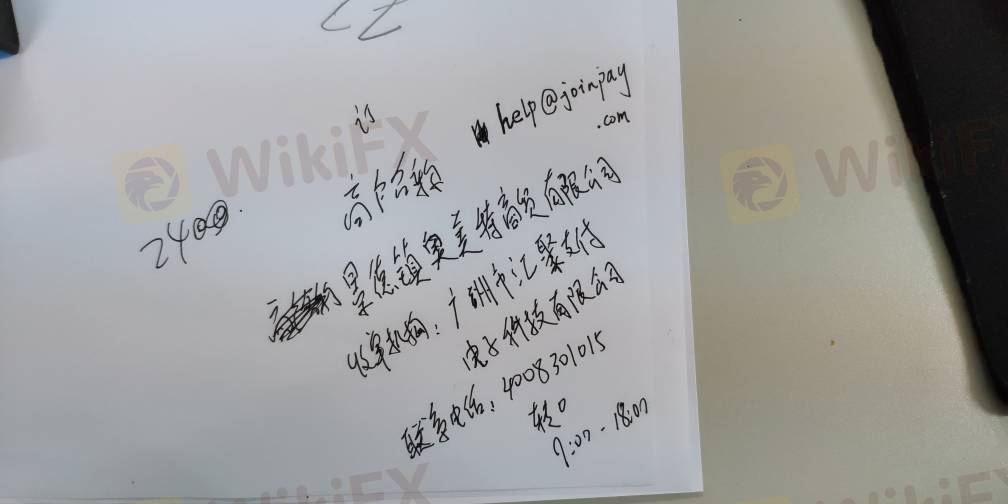 help@joinpay
.com
2400
景德镇奥美特商贸有限公司
收单机构：广州市汇聚支付
电子科技有限公司
联系电话：4008301015
转0
9:00-18:00
WikiFX
WikiFX
WikiFX
WikiFX